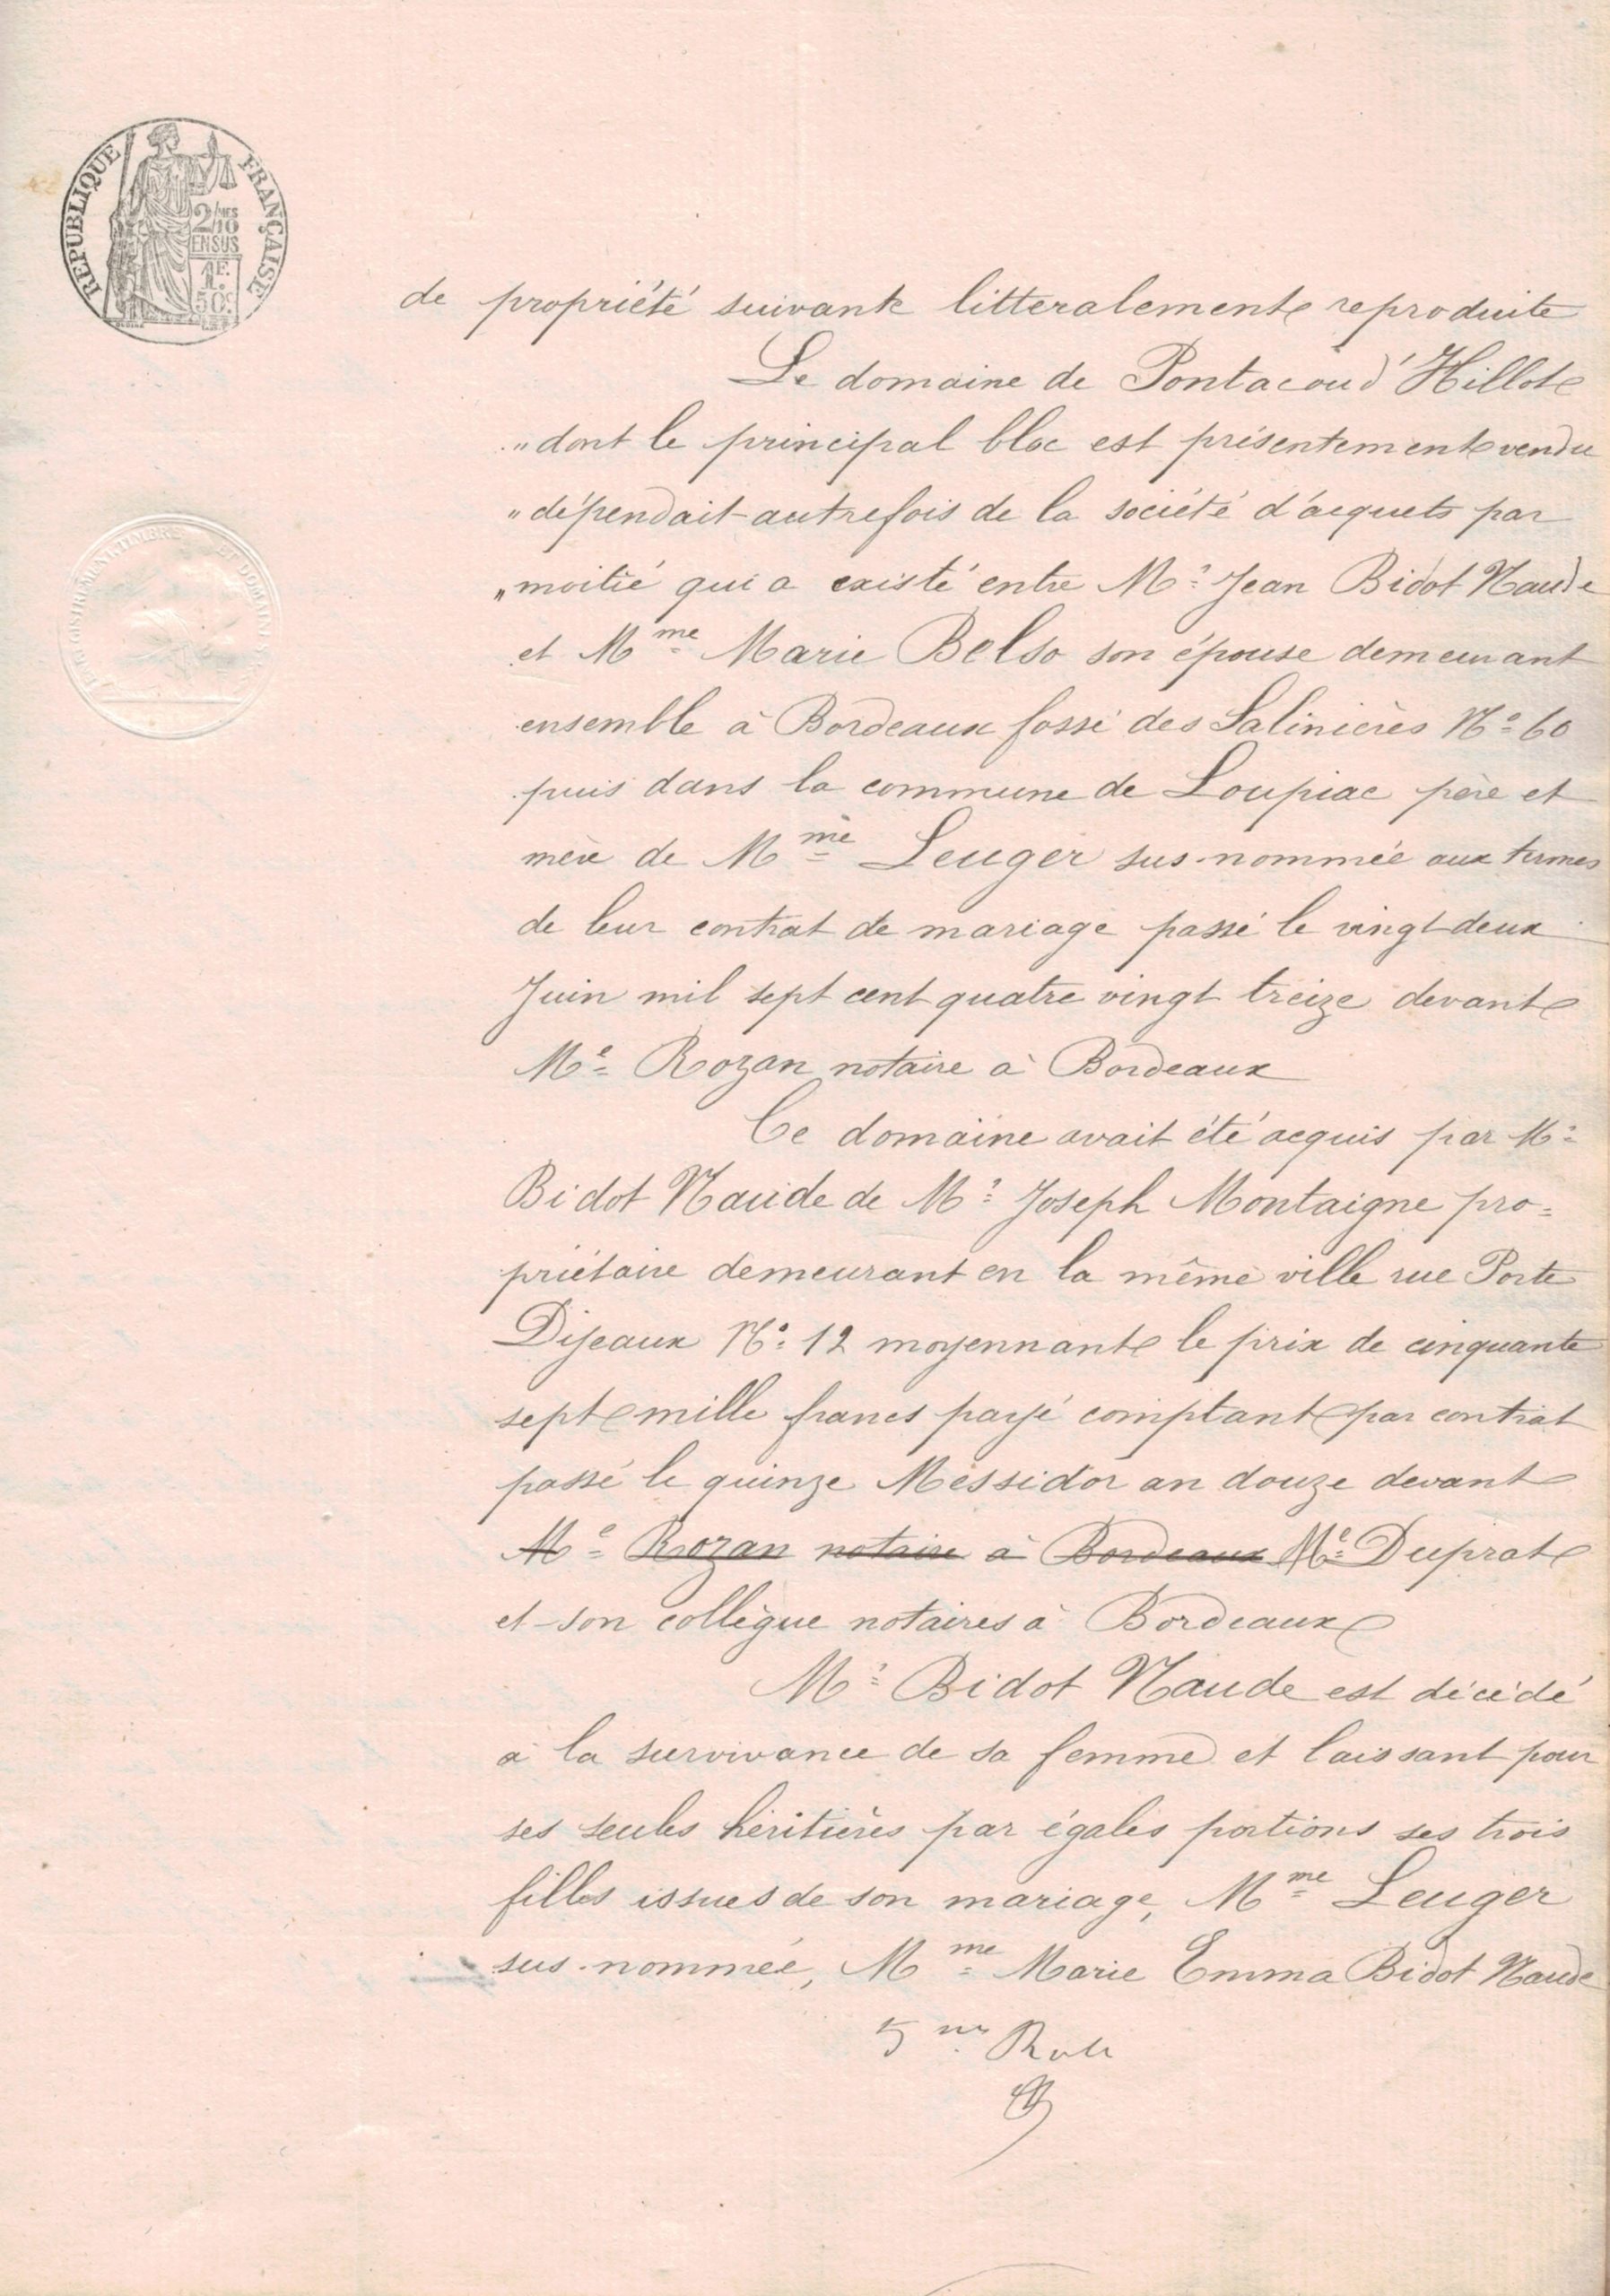 RÉPUBLIQUE FRANÇAISE
2/10 MES
EN SUS
1F.
50C.
de propriété suivante litteralement reproduite
Le domaine de Pontacou d'Hillot
" dont le principal bloc est présentement vendu
" dépendait autrefois de la société d'acquets par
" moitié qui a existé entre Mr Jean Bidot Naude
et Mme Marie Belso son épouse demeurant
ensemble à Bordeaux fossé des Salinières No 60
puis dans la commune de Loupiac père et
mère de Mme Leuger sus-nommée aux termes
de leur contrat de mariage passé le vingt deux
Juin mil sept cent quatre vingt treize devant
Me Rozan notaire à Bordeaux
Ce domaine avait été acquis par Mr
Bidot Naude de Mr Joseph Montaigne pro=
priétaire demeurant en la même ville rue Porte
Dijeaux No 12 moyennant le prix de cinquante
sept mille francs payé comptant par contrat
passé le quinze Messidor an douze devant
Me Rozan notaire à Bordeaux Me Duprat
et son collègue notaires à Bordeaux
Mr Bidot Naude est décédé
à la survivance de sa femme et laissant pour
ses seules héritières par égales portions ses trois
filles issues de son mariage, Mme Leuger
sus-nommée, Mme Marie Emma Bidot Naude
5me Role